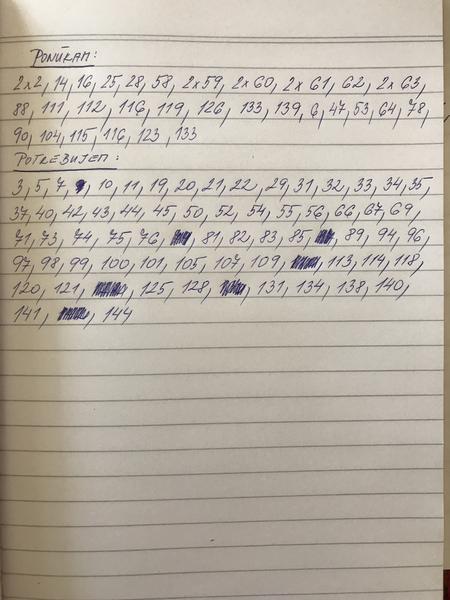 PONÚKAM:
2x2, 14, 16, 25, 28, 58, 2x59, 2x60, 2x61, 62, 2x63,
88, 111, 112, 116, 119, 126, 133, 139, 6, 47, 53, 64, 78,
90, 104, 115, 116, 123, 133
POTREBUJEM:
3, 5, 7, 10, 11, 19, 20, 21, 22, 29, 31, 32, 33, 34, 35,
37, 40, 42, 43, 44, 45, 50, 52, 54, 55, 56, 66, 67, 69,
71, 73, 74, 75, 76, 81, 82, 83, 85, 89, 94, 96,
97, 98, 99, 100, 101, 105, 107, 109, 113, 114, 118,
120, 121, 125, 128, 131, 134, 138, 140,
141, 144